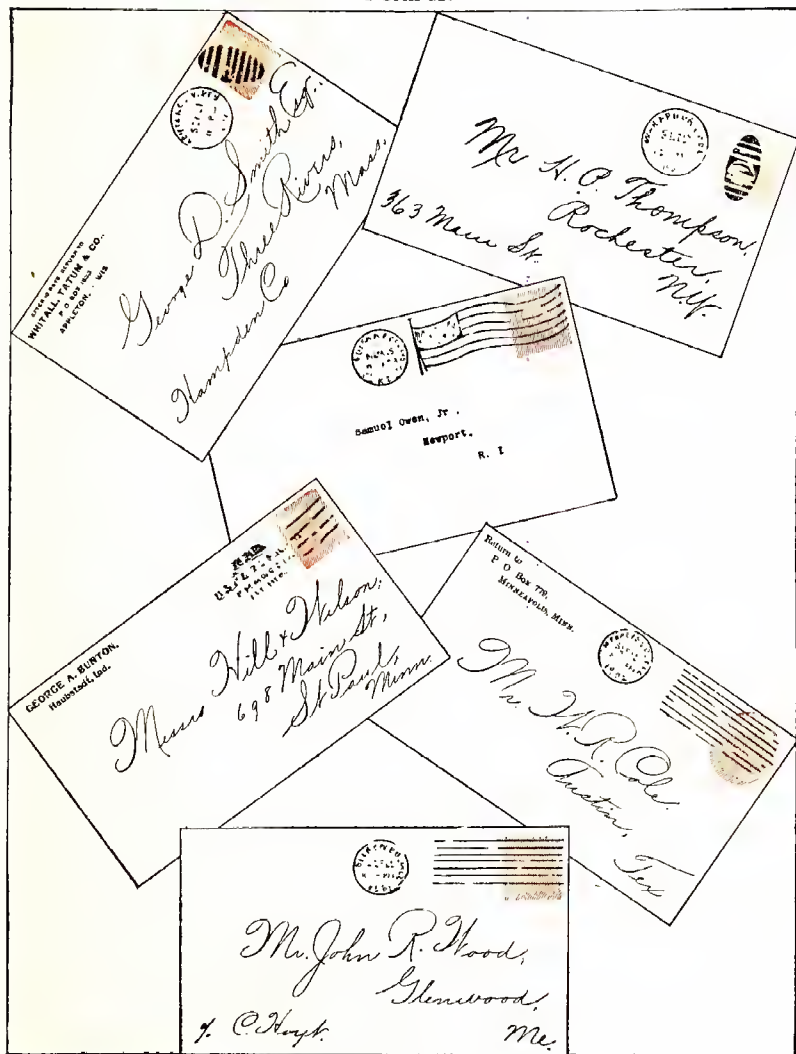 AFTER 10 DAYS RETURN TO
WHITALL, TATUM & CO.,
P O BOX
APPLETON, WIS
George D. Smith Esq.,
Three Rivers,
Mass,
Hampden Co
Mr H. P. Thompson,
Rochester,
NY.
363 Main St.
Samuel Owen, Jr.
Newport,
R. I
GEORGE A. BUNTON,
Haubstadt, Ind.
Messrs Hill & Wilson,
698 Main St,
St Paul,
Minn.
Return to
P O Box 779,
MINNEAPOLIS, MINN.
Mr. H. R. Cole.
Austin,
Tex
Mr. John R. Wood,
Glenwood,
% C. Hoyt. Me.